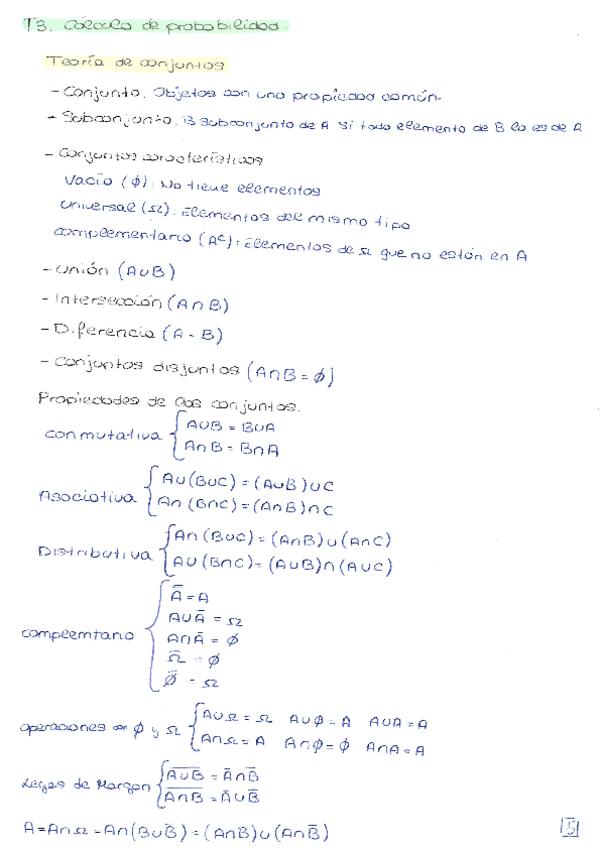 T3. Cálculo de probabilidad
Teoría de conjuntos
- Conjunto. Objetos con una propiedad común.
- Subconjunto. B subconjunto de A si todo elemento de B lo es de A
- Conjuntos característicos
Vacío (ϕ): No tiene elementos
Universal (Ω): Elementos del mismo tipo
Complementario (Aᶜ): Elementos de Ω que no están en A
- Unión (A∪B)
- Intersección (A∩B)
- Diferencia (A - B)
- Conjuntos disjuntos (A∩B = ϕ)
Propiedades de los conjuntos.
Conmutativa { A∪B = B∪A
A∩B = B∩A
Asociativa { A∪(B∪C) = (A∪B)∪C
A∩(B∩C) = (A∩B)∩C
Distributiva { A∩(B∪C) = (A∩B)∪(A∩C)
A∪(B∩C) = (A∪B)∩(A∪C)
Compleemtario { A̿ = A
A∪Ā = Ω
A∩Ā = ϕ
Ω̅ = ϕ
ϕ̅ = Ω
Operaciones con ϕ y Ω { A∪Ω = Ω A∪ϕ = A A∪A = A
A∩Ω = A A∩ϕ = ϕ A∩A = A
Leyes de Morgan { A̅∪̅B̅ = Ā∩B̅
A̅∩̅B̅ = Ā∪B̅
A = A∩Ω = A∩(B∪B̅) = (A∩B)∪(A∩B̅)
5